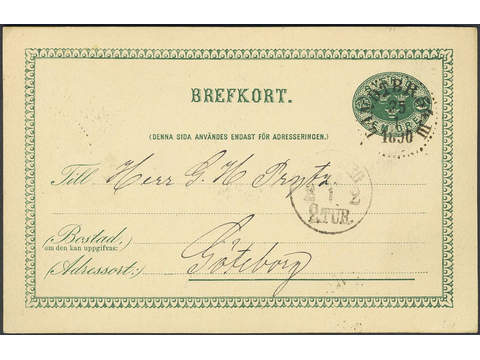 BREFKORT.
(DENNA SIDA ANVÄNDES ENDAST FÖR ADRESSERINGEN.)
25
1890
Till Herr G. H.
1 2
2.TUR.
(Bostad,
om den kan uppgifvas:)
(Adressort:) Göteborg